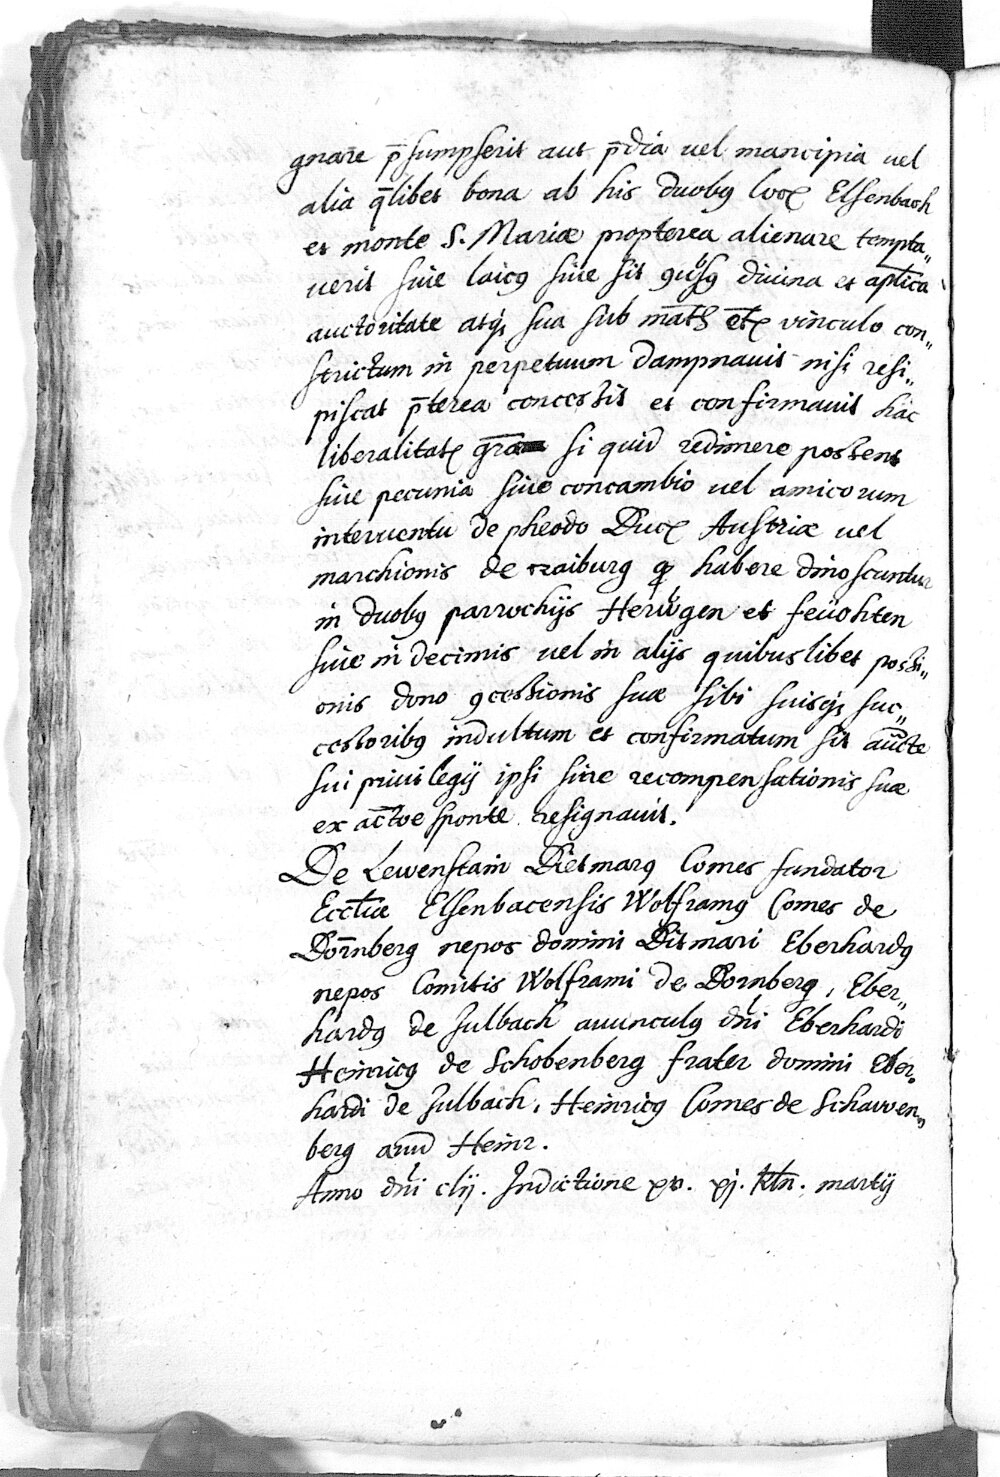 gnare p̄sumpserit aut p̄dia uel mancipia uel
alia q̄libet bona ab his duobꝰ locꝭ Elsenbach
et monte S. Mariæ propterea alienare tempta„
uerit siue laicꝰ siue sit diuina et apl̄ica
auctoritate atqꝫ sua sub vinculo con„
strictum in perpetuum dampnauit nisi resi„
piscat p̄terea concessit et confirmauit hac
liberalitatꝭ gr̄a si quid redimere possent
siue pecunia siue concambio uel amicorum
interuentu de pheodo Ducꝭ Austriæ uel
marchionis de craiburg habere dinoscuntur
in duobꝰ parrochijs Herwgen et feüchten
siue in decimis uel in alijs quibuslibet possi„
onis dono ꝯcessionis suæ sibi suisqꝫ suc„
cessoribꝰ indultum et confirmatum sit
sui priuilegij ipsi siue recompensationis suæ
ex sponte resignauit.
De Lewenstain Dietmarꝰ Comes fundator
Eccl̄iæ Elsenbacensis Wolframꝰ Comes de
Dor̄nberg nepos domini Ditmari Eberhardꝰ
nepos Comitis Wolframi de Dornberg, Eber„
hardꝰ de Julbach auunculꝰ dn̄i Eberhardi
Heinricꝰ de Schobenberg frater domini Eber„
hardi de Julbach, Heinricꝰ Comes de Schawen„
berg Heinr.
Anno dn̄i clij. Indictione xv. xj. kln̄. martij